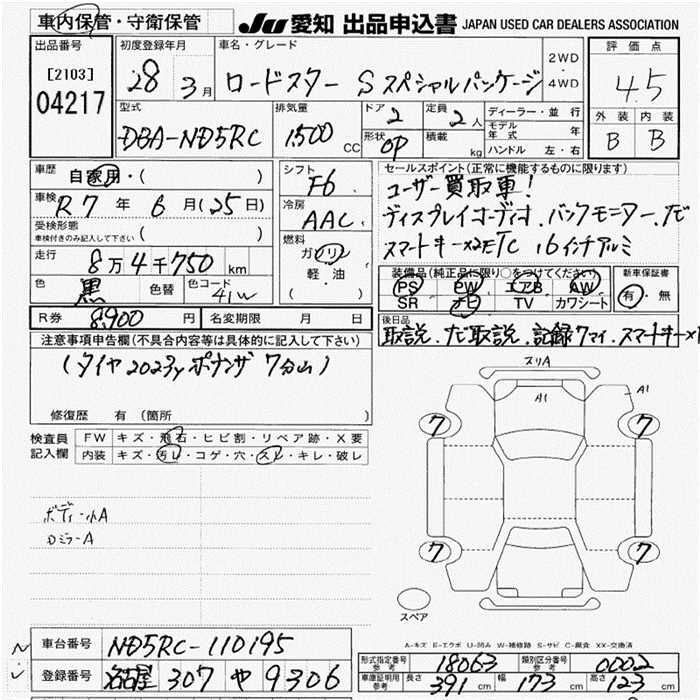 車内保管・守衛保管 JU 愛知 出品申込書 JAPAN USED CAR DEALERS ASSOCIATION
出品番号 初度登録年月 車名・グレード 2WD・4WD 評価点
[2103] 04217 28 3月 ロードスター Sスペシャルパッケージ 4.5
型式 排気量 ドア 2 定員 2人 ディーラー・並行 外装 内装
DBA-ND5RC 1500 CC 形状 OP 積載 kg モデル年式 年 B B
ハンドル 左・右
車歴 自家用・( ) シフト F6 セールスポイント(正常に機能するものに限ります)
車検 R7年 6月(25日) 冷房 AAC ユーザー買取車!
受検形態 車検付きのみ記入して下さい ( ) ディスプレイオーディオ.バックモニター.ナビ
走行 8万4千750km 燃料 ガソリン・軽・油 ( ) スマートキー×2 ETC 16インチアルミ
色 黒 色替 色コード 41W 装備品(純正品に限り○をつけてください) 新車保証書
PS PW エアB AW 有・無
SR ナビ TV カワシート
R券 8,900円 名変期限 月 日 後日品
取説.ナビ取説.記録7マイ.スマートキー×1
注意事項申告欄(不具合内容等は具体的に記入して下さい)
(タイヤ2023yポテンザ7分山)
修復歴 有(箇所 )
検査員記入欄 FW キズ・飛石・ヒビ割・リペア跡・X要
内装 キズ・汚レ・コゲ・穴・スレ・キレ・破レ
スリA
A1 A1
7 7
ボディー小A
ロミラーA
7 7
スペア
A-キズ E-エクボ U-凹み W-補修跡 S-サビ C-腐食 XX-交換済
車台番号 ND5RC-110195 型式指定番号 参考 18063 類別区分番号 参考 0002
登録番号 名古屋 307 や 9306 車庫証明用 参考 長さ 391cm 幅 173cm 高さ 123cm